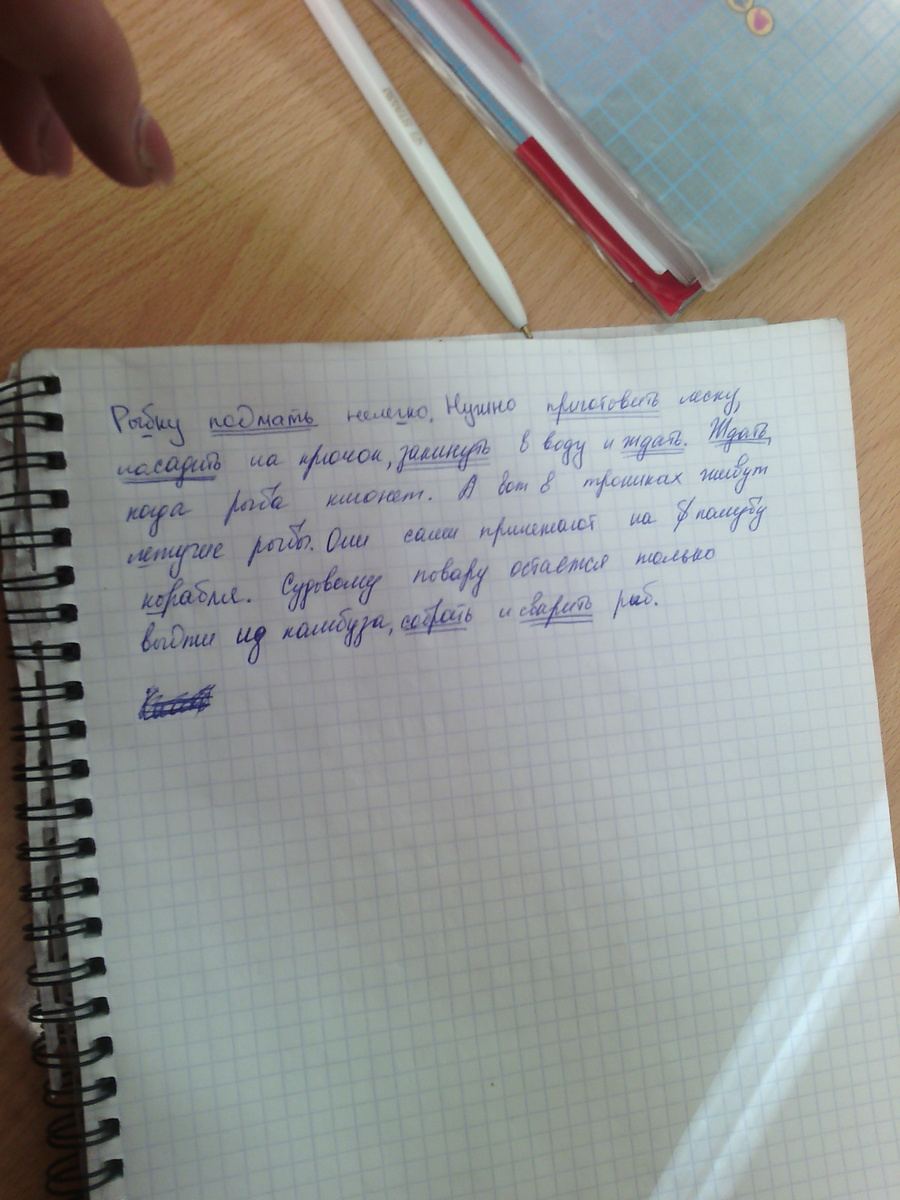 Рыбку подмать нелегко. Нужно приготовить леску,
насадить на крючок, закинуть в воду и ждать. Ждать,
когда рыба клюнет. А вот в тропиках живут
летучие рыбы. Они сами прилетают на палубу
корабля. Судовому повару остается только
выйти из камбуза, собрать и сварить рыб.